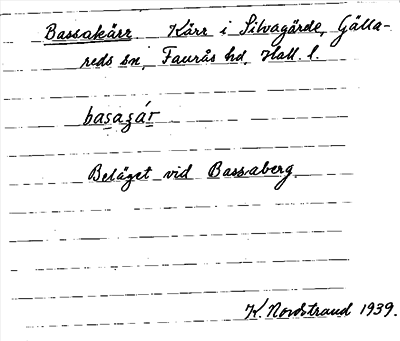 Bassakärr. Kärr i Silvagärde, Gälla-
reds sn, Faurås hd, Hall. l.
Beläget vid Bassaberg.
K. Nordstrand 1939.